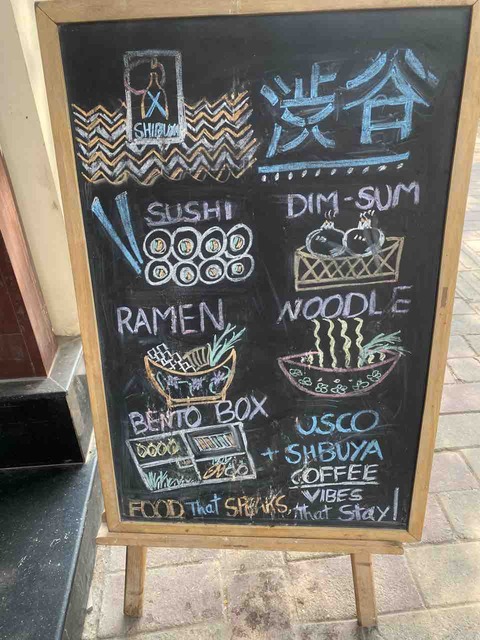 SHIBUYA
渋谷
SUSHI
DIM-SUM
RAMEN
NOODLE
BENTO BOX
USCO
+ SHBUYA
COFFEE
VIBES
FOOD that SPEAKS, that Stay!